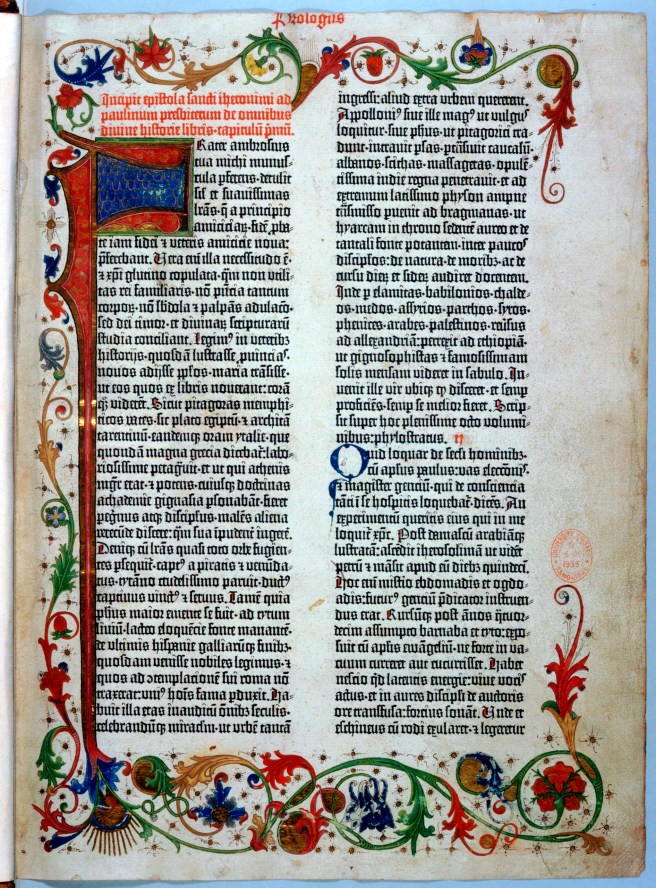 Prologus
Incipit epistola sancti iheronimi ad
paulinum presbiterum de omnibus
divine historie libris. capitulū pmū.
Frater ambrosius
tua michi munuſ-
cula pferens. detulit
sil et suavissimas
lrās. q a principio
amiciciaȝ. fidē pba-
te iam fidei ⁊ veteris amicicie nova:
pferebant. Vera em̄ illa necessitudo ē.
⁊ xpi glutino copulata. qm̄ non utili-
tas rei familiaris. nō pntia tantum
corporȝ. nō sbdola ⁊ palpās adulacō.
sed dei timor. et divinaȝ scripturarū
studia conciliant. Legimꝰ in veteribȝ
historijs. quosdā lustrasse puincias.
novos adijsse pplos. maria trāsisse.
ut eos quos ex libris noverant: corā
qȝ viderēt. Sicut pitagoras memphi-
ticos vates. sic plato egiptū. ⁊ architā
tarentinū. eandemqȝ oram ytalie. que
quondā magna grecia dicebat: labo-
riosissime peragravit. et ut qui athenis
mgr̄ erat. ⁊ potens. cuiusqȝ doctrinas
achademie gignasia psonabāt. fieret
pegrinus atqȝ discipls. malēs aliena
verecūde discere: qm̄ sua īpudent īgerē.
Deniqȝ cū lrās quasi toto orbe fugien-
tes psequit. captꝰ a piratis ⁊ venūda-
tus. tyrāno crudelissimo paruit. ductꝰ
captivus vinctꝰ ⁊ servus. Tamē quia
phus maior emente se fuit. ad tytum
livium. lacteo eloquēcie fonte manantē.
de ultimis hispanie galliarūqȝ finibȝ.
quosdam venisse nobiles legimus. ⁊
quos ad ɔtemplacionē sui roma nō
traxerat: uniꝰ hoīs fama pduxit. Ha-
buit illa etas inauditū om̄ibȝ seculis.
celebrandūqȝ miraclm. ut urbē tantā
ingressi: aliud extra urbem quererent.
Appolloniꝰ sive ille magꝰ ut vulgus
loquitur. sive phus. ut pitagorici tra-
dunt. intravit psas. ptrāsivit caucasū.
albanos. scithas. massagetas. opulē-
tissima indie regna penetravit. et ad
extremum latissimo physon ampne
trāsmisso pvenit ad bragmanas. ut
hyarcam in throno sedentē aureo et de
tantali fonte potantem. inter paucos
discipłos: de natura. de moribȝ. ac de
cursu dierȝ et siderȝ audiret docentem.
Inde p elamitas. babilonios. chalde-
os. medos. assyrios. parthos. syros.
phenices. arabes. palestinos. reversus
ad allexandriā. perrexit ad ethiopiā.
ut gignosophistas ⁊ famosissimam
solis mensam videret in sabulo. In-
venit ille vir ubiqȝ qȝ disceret. et semp
proficiēs. semp se melior fieret. Scrip-
sit super hoc plenissime octo volumi-
nibus: phylostratus. II
Quid loquar de secli hominibȝ.
cū apłus paulus: vas electōnis.
⁊ magister gentiū. qui de consciencia
tāti ī se hospitis loquebat dicēs. An
experimentū queritis eius qui in me
loquit xpc. Post damascū arabiāqȝ
lustratā: ascēdit iherosolimā ut videt
petrū ⁊ māsit apud eū diebȝ quindeci.
Hoc em̄ misterio ebdomadis et ogdo-
adis: futurꝰ gentiū pdicator instruen-
dus erat. Rursūqȝ post ānos qtuor-
decim assumpto barnaba et tyto: expo-
suit cū apłis ewāgeliū. ne forte in va-
cuum curreret aut cucurrisset. Habet
nescio qd latentis energie: vive vocis
actus. et in aures discipli de auctoris
ore transfusa: fortius sonat. Unde et
eschineus cū rodi exularet. ⁊ legeretur